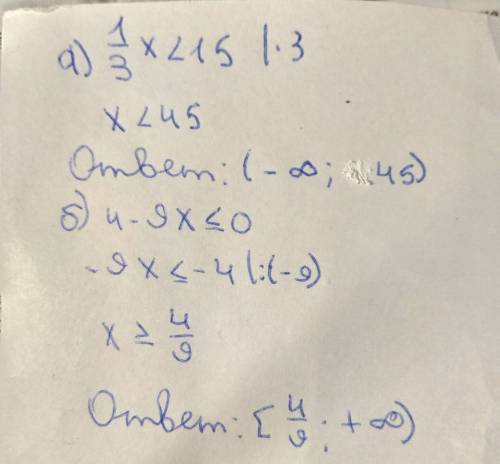 а) 1/3 x < 15 | · 3
x < 45
Ответ: (-∞; 45)
б) 4 - 9x ≤ 0
-9x ≤ -4 | :(-9)
x ≥ 4/9
Ответ: [4/9; +∞)